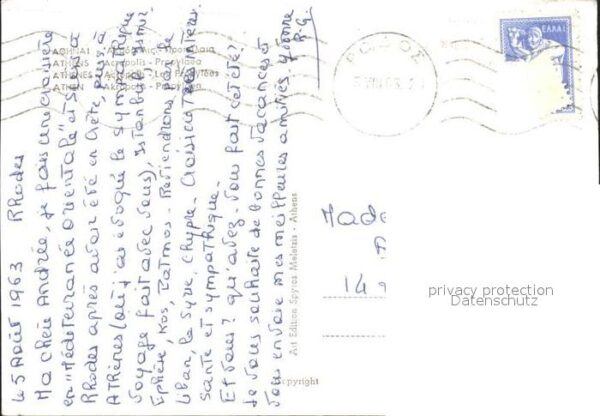 ΑΘΗΝΑΙ
ATHENS Acropolis - Propylaea
ATHENES Acropolis - Les Propylées
ATHEN Akropolis - Propyläen
ΕΛΛΑΣ
ΡΟΔΟΣ
Le 5 Août 1963 Rhodes
Ma chère Andrée, je fais une croisière
en "Méditerranée orientale" et suis à
Rhodes après avoir été en Crète, puis à
Athènes (où j'ai évoqué le sympathique
voyage fait avec vous), Istanbul, Izmir
Ephèse, Kos, Patmos. Reviendrons par le
Liban, la Syrie, Chypre. Croisière très intéres
sante et sympathique.
Et vous? qu'avez-vous fait cet été?
Je vous souhaite de bonnes vacances et
vous envoie mes meilleures amitiés Yvonne
R.G.
Art Edition Spyros Meletzis - Athens
Copyright
Made
14
privacy protection
Datenschutz